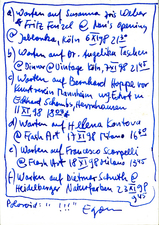 a) Warten auf Susanne Iris Weber
& Fritz Fenzel @ Dan's opening
@ Jablonka, Köln 6 XI 98 21³⁰
b) Warten auf Dr. Angelika Taschen
@ Dinner @ Vintage Köln, 7 XI 98 21⁰⁰
c) Warten auf Bernhard Hoppe vor
Kunstverein Mannheim
11 XI 98 18⁰⁰
d) Warten auf Helena Kontova
@ Flash Art 17 XI 98 Milano 16⁰⁰
e) Warten auf Francesco Scarpelli
@ Flash Art 18 XI 98 Milano 13⁴⁵
f) Warten auf Dietmar Schuth @
Heidelberger Naturfarben 23 XI 98
9⁴⁵
Polaroids !! !!!"